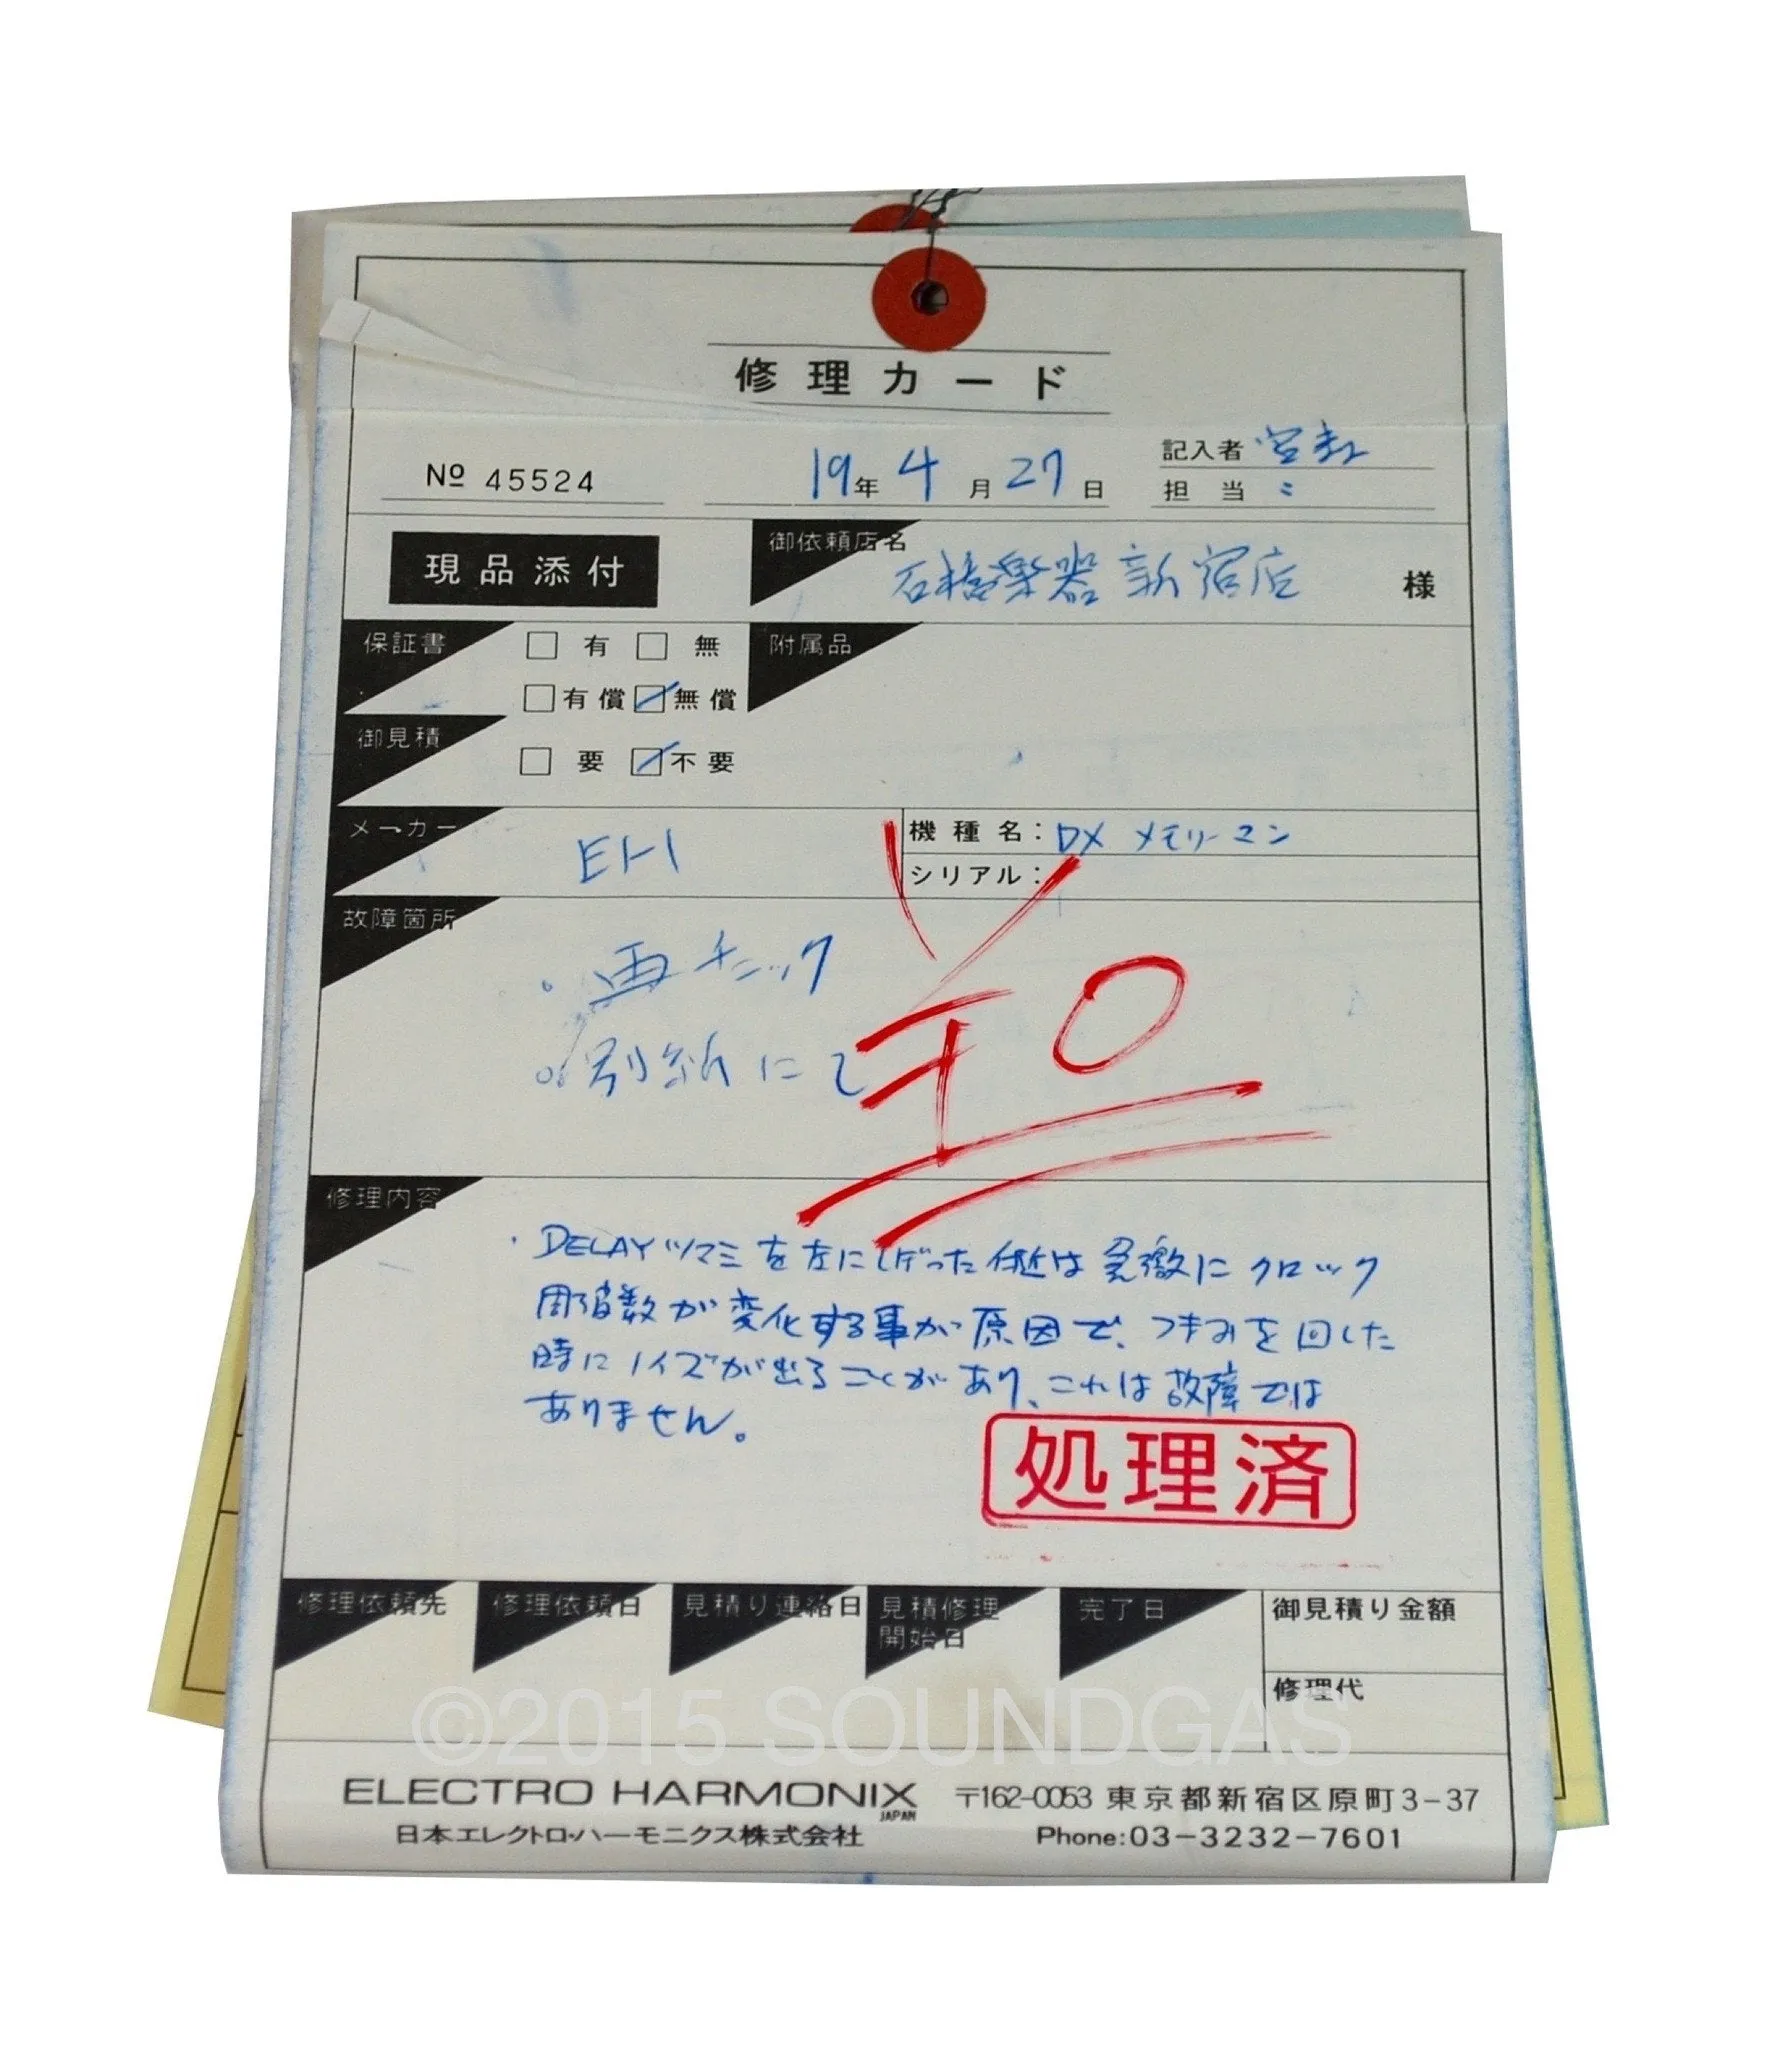 修理カード
№ 45524
19年 4月 27日
記入者
担当 〃
現品添付
御依頼店名
石橋楽器 新宿店 様
保証書
□ 有 □ 無
□ 有償 ☑ 無償
附属品
御見積
□ 要 ☑ 不要
メーカー
EH
機種名: DX メモリーマン
シリアル:
故障箇所
・再チェック
別紙にて
¥0
修理内容
・DELAYツマミを左に した は急激にクロック
周波数が変化する事が原因で、つまみを回した
時にノイズが出ることがあり、これは故障では
ありません。
処理済
修理依頼先
修理依頼日
見積り連絡日
見積修理
開始日
完了日
御見積り金額
修理代
©2015 SOUNDGAS
ELECTRO HARMONIX
JAPAN
日本エレクトロ・ハーモニクス株式会社
〒162-0053 東京都新宿区原町3-37
Phone:03-3232-7601